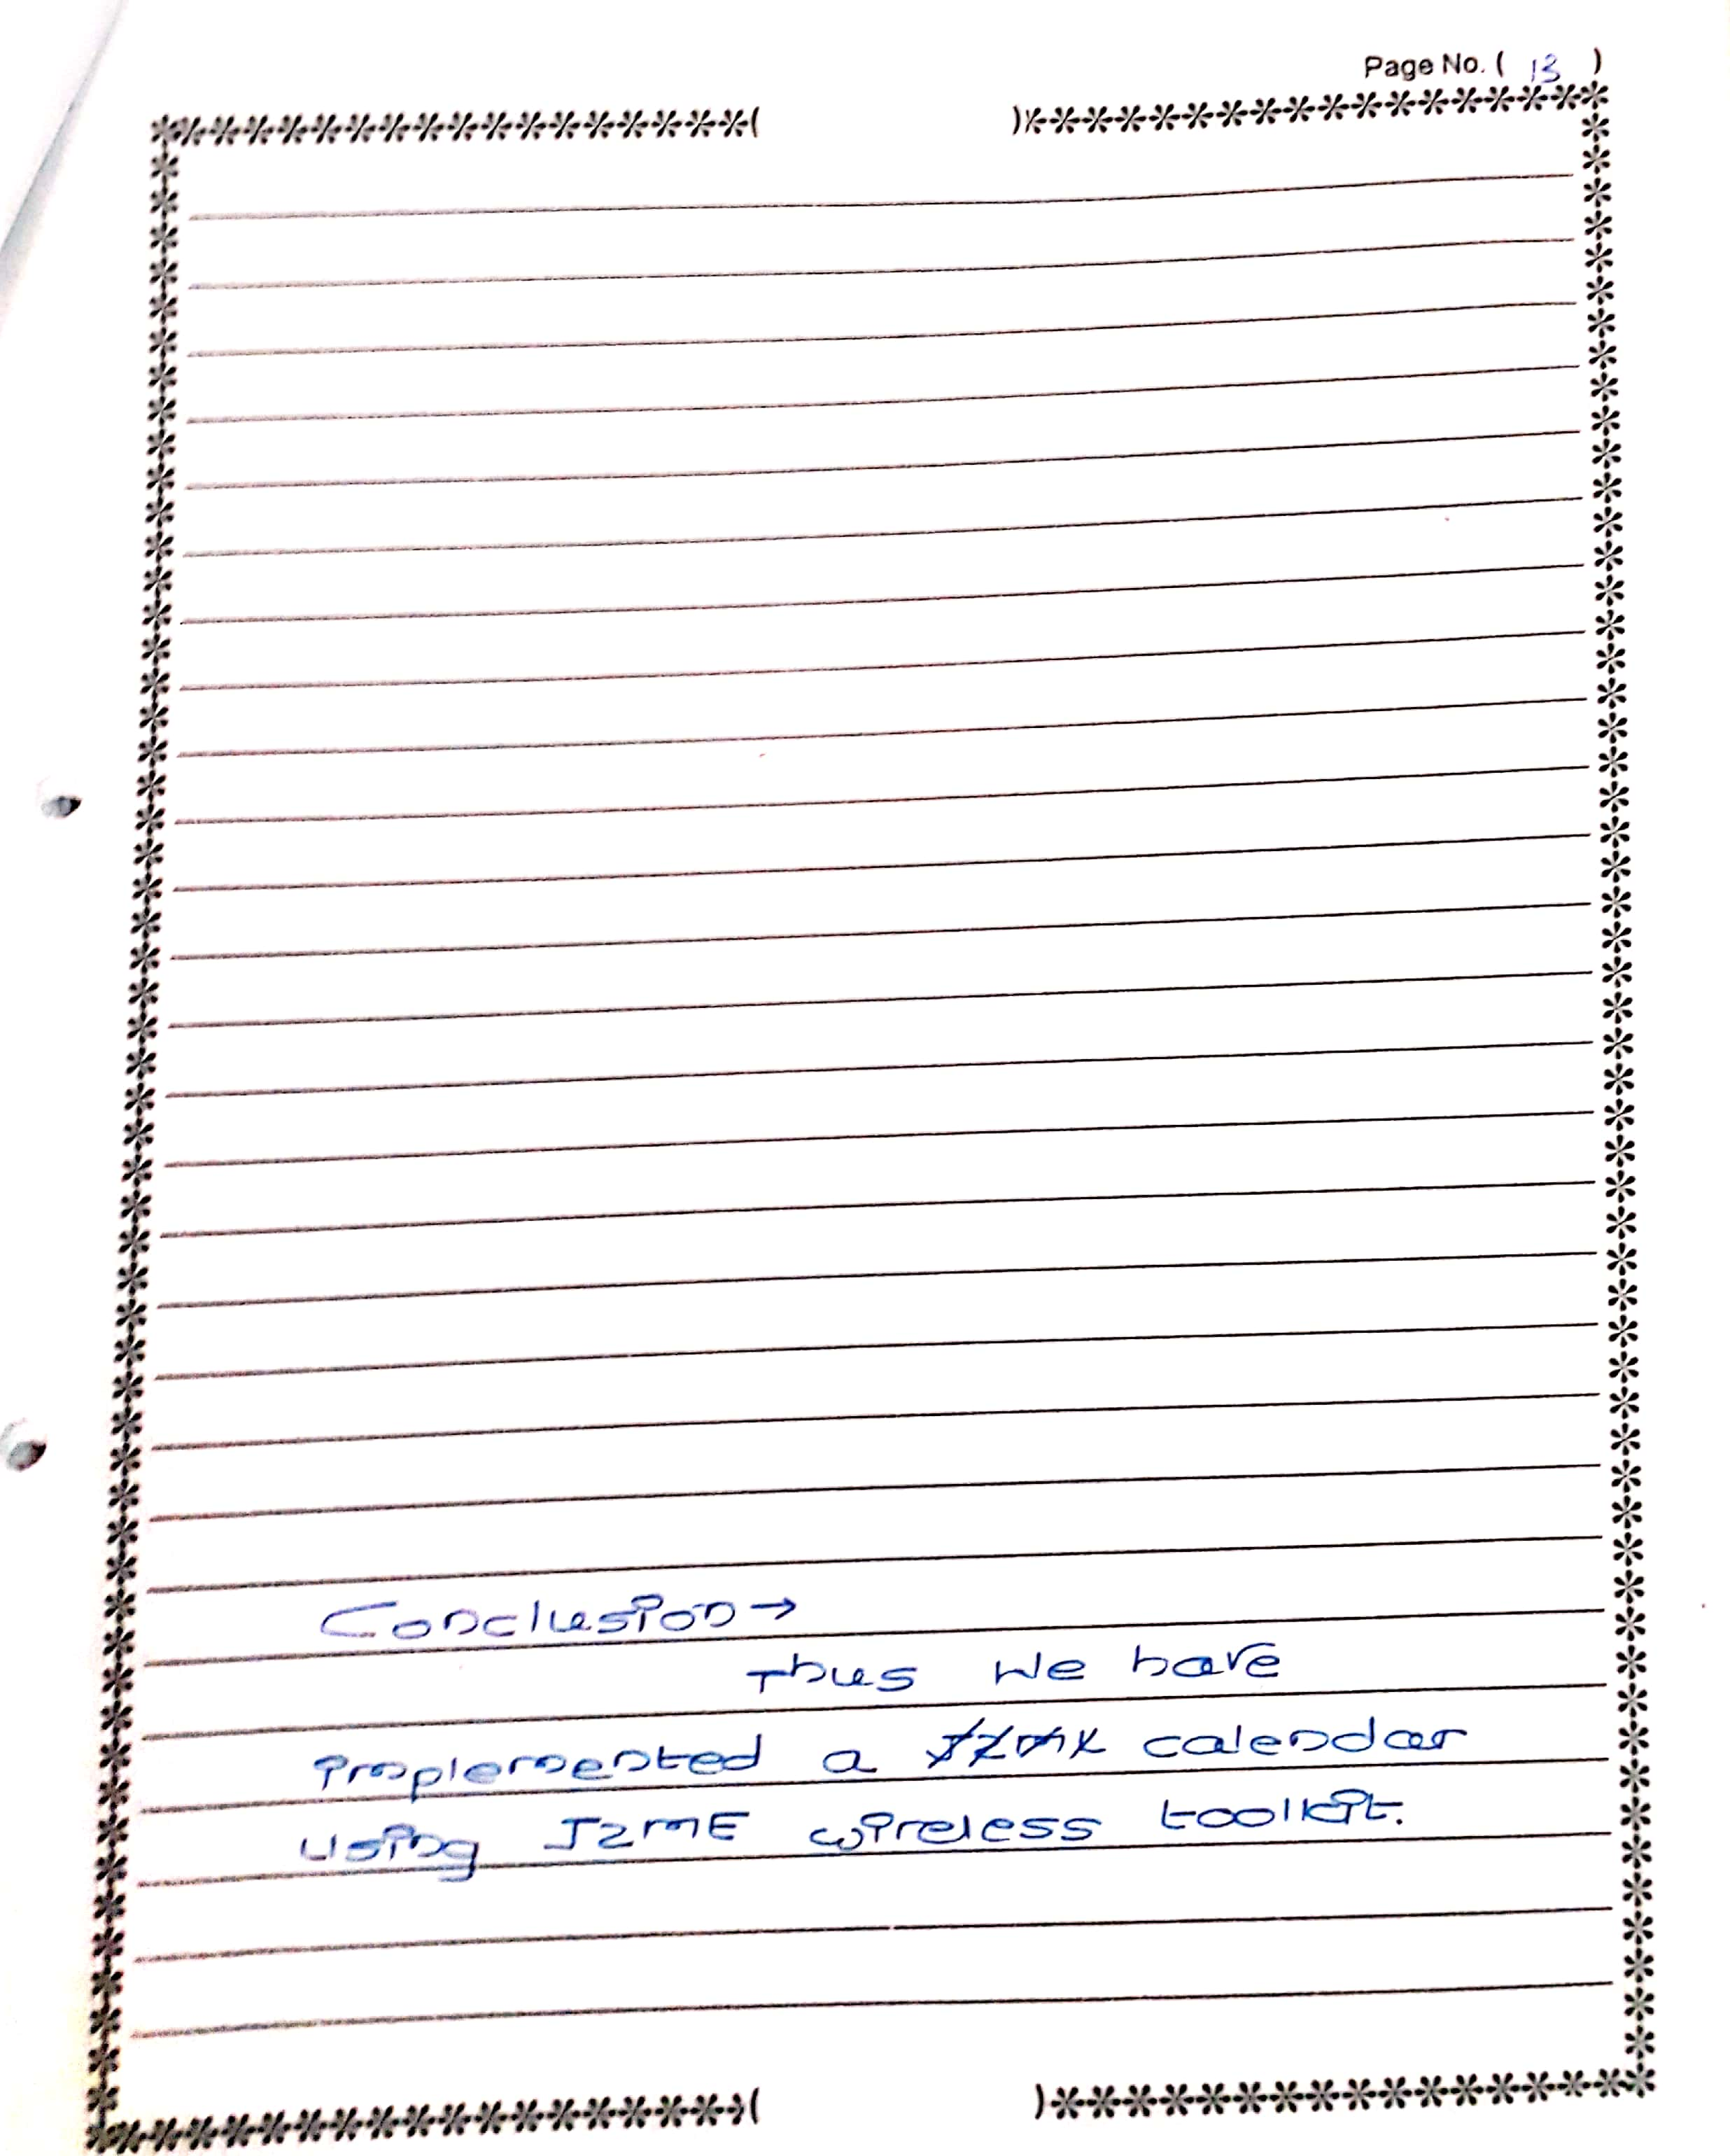 Page No. ( 13 )
Conclusion →
Thus We have
implemented a calendar
using J2ME wireless toolkit.